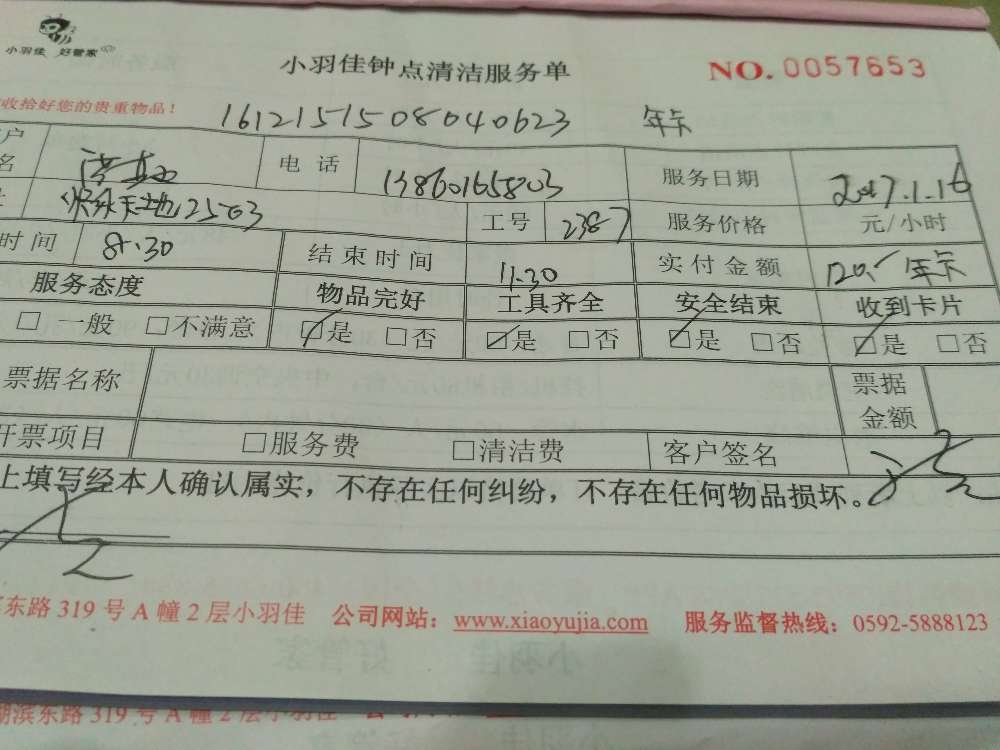 小羽佳 好管家
小羽佳钟点清洁服务单 NO. 0057653
收拾好您的贵重物品！
1612151508040623 年卡
户名 电话 13860165803 服务日期 2017.1.16
天地2503 工号 2387 服务价格 元/小时
时间 8:30 结束时间 11:30 实付金额 120 年卡
服务态度 物品完好 工具齐全 安全结束 收到卡片
□一般 □不满意 ☑是 □否 ☑是 □否 ☑是 □否 ☑是 □否
票据名称 票据金额
开票项目 □服务费 □清洁费 客户签名
上填写经本人确认属实，不存在任何纠纷，不存在任何物品损坏。
东路 319 号 A 幢 2 层小羽佳 公司网站：www.xiaoyujia.com 服务监督热线：0592-5888123
湖滨东路 319 号 A 幢 2 层小羽佳